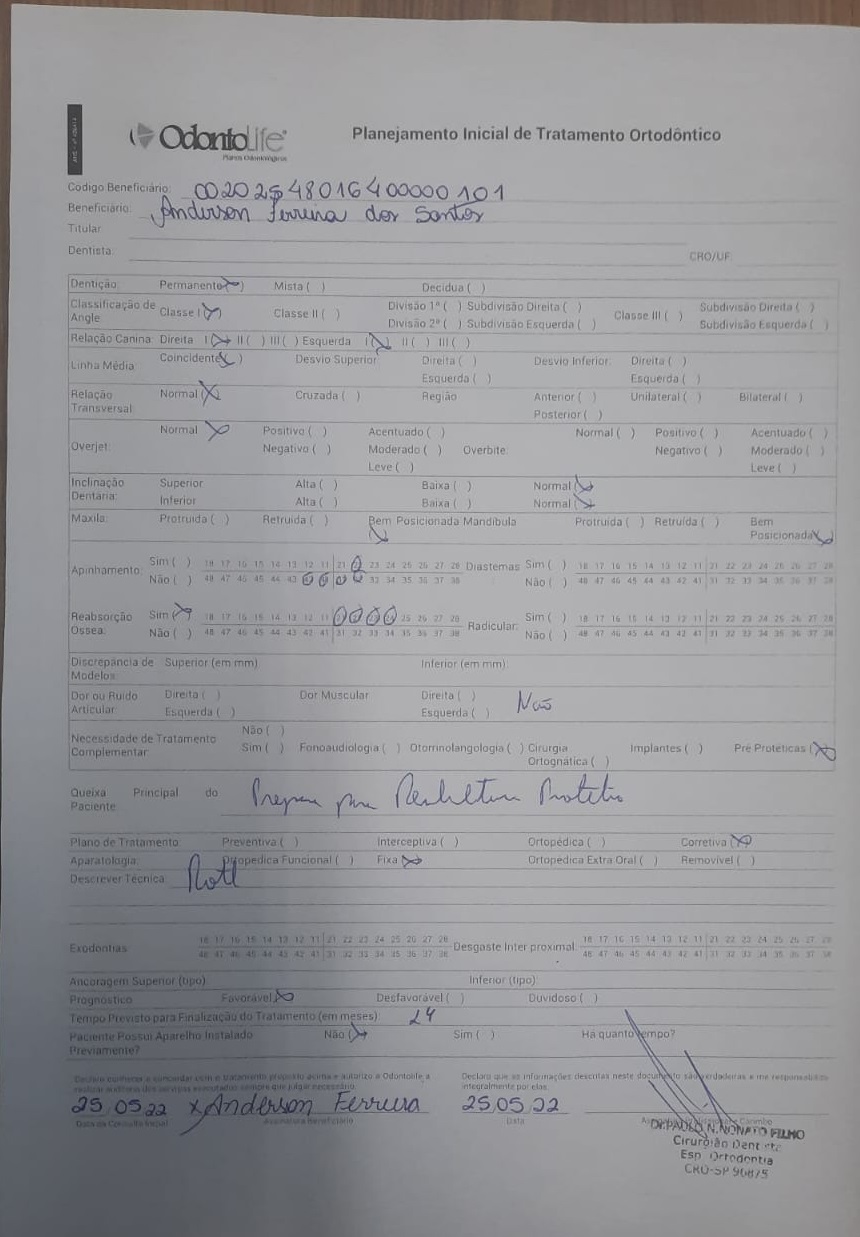 OdontoLife
Planos Odontológicos
Planejamento Inicial de Tratamento Ortodôntico
Código Beneficiário: 00202548016400000101
Beneficiário: Anderson Ferreira dos Santos
Titular
Dentista: CRO/UF:
Dentição: Permanente (X) Mista ( ) Decídua ( )
Classificação de Angle: Classe I (X) Classe II ( ) Divisão 1ª ( ) Subdivisão Direita ( ) Classe III ( ) Subdivisão Direita ( )
Divisão 2ª ( ) Subdivisão Esquerda ( ) Subdivisão Esquerda ( )
Relação Canina: Direita I (X) II ( ) III ( ) Esquerda I (X) II ( ) III ( )
Linha Média: Coincidente (X) Desvio Superior: Direita ( ) Desvio Inferior: Direita ( )
Esquerda ( ) Esquerda ( )
Relação Transversal: Normal (X) Cruzada ( ) Região Anterior ( ) Unilateral ( ) Bilateral ( )
Posterior ( )
Overjet: Normal (X) Positivo ( ) Acentuado ( ) Overbite: Normal ( ) Positivo ( ) Acentuado ( )
Negativo ( ) Moderado ( ) Negativo ( ) Moderado ( )
Leve ( ) Leve ( )
Inclinação Dentária: Superior Alta ( ) Baixa ( ) Normal (X)
Inferior Alta ( ) Baixa ( ) Normal (X)
Maxila: Protruída ( ) Retruída ( ) Bem Posicionada (X) Mandíbula Protruída ( ) Retruída ( ) Bem Posicionada (X)
Apinhamento: Sim ( ) 18 17 16 15 14 13 12 11 21 23 24 25 26 27 28 Diastemas Sim ( ) 18 17 16 15 14 13 12 11 21 22 23 24 25 26 27 28
Não ( ) 48 47 46 45 44 43 33 34 35 36 37 38 Não ( ) 48 47 46 45 44 43 42 41 31 32 33 34 35 36 37 38
Reabsorção Óssea: Sim (X) 18 17 16 15 14 13 12 11 25 26 27 28 Radicular: Sim ( ) 18 17 16 15 14 13 12 11 21 22 23 24 25 26 27 28
Não ( ) 48 47 46 45 44 43 42 41 31 32 33 34 35 36 37 38 Não ( ) 48 47 46 45 44 43 42 41 31 32 33 34 35 36 37 38
Discrepância de Modelos: Superior (em mm) Inferior (em mm):
Dor ou Ruído Articular: Direita ( ) Dor Muscular Direita ( ) Não
Esquerda ( ) Esquerda ( )
Necessidade de Tratamento Complementar: Não ( )
Sim ( ) Fonoaudiologia ( ) Otorrinolangologia ( ) Cirurgia Ortognática ( ) Implantes ( ) Pré Protéticas (X)
Queixa Principal do Paciente:
Plano de Tratamento: Preventiva ( ) Interceptiva ( ) Ortopédica ( ) Corretiva (X)
Aparatologia: Ortopedica Funcional ( ) Fixa (X) Ortopedica Extra Oral ( ) Removível ( )
Descrever Técnica: Roth
Exodontias: 18 17 16 15 14 13 12 11 21 22 23 24 25 26 27 28 Desgaste Inter proximal: 18 17 16 15 14 13 12 11 21 22 23 24 25 26 27 28
48 47 46 45 44 43 42 41 31 32 33 34 35 36 37 38 48 47 46 45 44 43 42 41 31 32 33 34 35 36 37 38
Ancoragem Superior (tipo) Inferior (tipo):
Prognóstico Favorável (X) Desfavorável ( ) Duvidoso ( )
Tempo Previsto para Finalização do Tratamento (em meses) 24
Paciente Possui Aparelho Instalado Previamente? Não (X) Sim ( ) Há quanto tempo?
Declaro conhecer e concordar com o tratamento proposto acima e autorizo a Odontolife a
realizar auditoria dos serviços executados sempre que julgar necessário.
Declaro que as informações descritas neste documento são verdadeiras e me responsabilizo
integralmente por elas.
25 05 22 X Anderson Ferreira 25 05 22
Data da Consulta Inicial Assinatura Beneficiário Data
Dr. PAULO N. NONATO FILHO
Cirurgião Dentista
Esp. Ortodontia
CRO-SP 96875